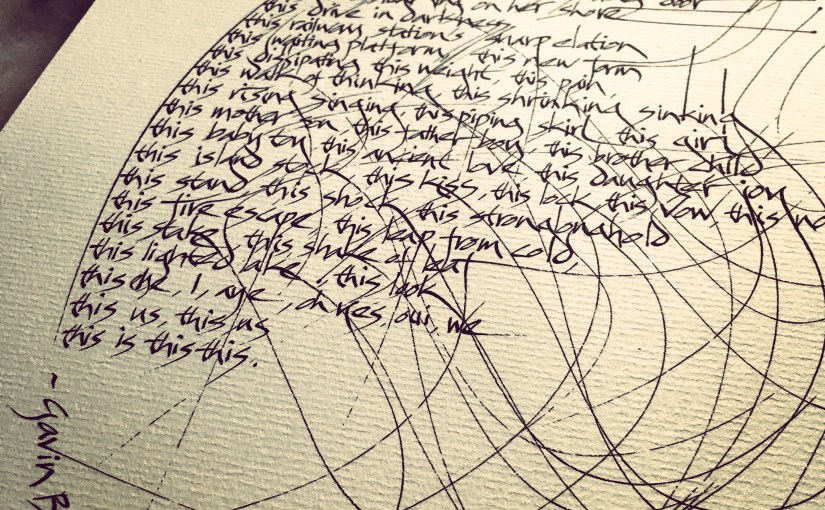 on her shore
this drive in darkness
this railway station's sharp elation
this waiting platform, this new form
this dissipating this weight, this pain,
this walk of thinking, this shrinking, sinking
this rising singing this piping skirl this girl
this mother on this father boy, this brother child
this baby cry this ancient love this daughter joy
this island stock this kiss, this lock this vow, this
this stand this shock this
this fire escape this leap from cold,
this stake, this shake of
this lighted lake, this look
this eye, I, aye, oh yes, oui, we
this us, this us
this is this this.
~ Gavin